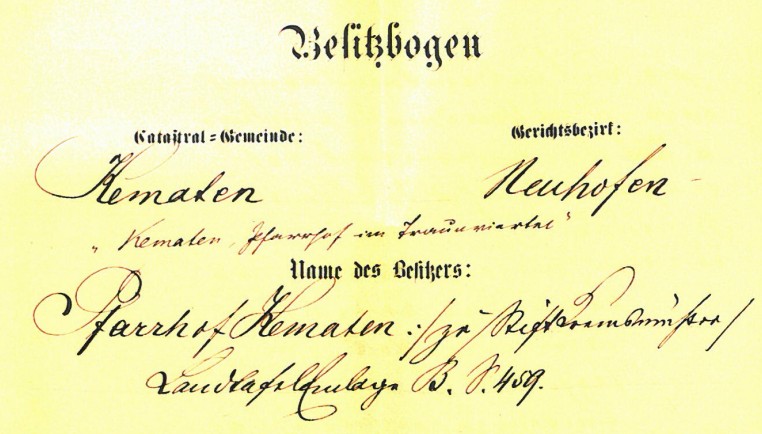 Besitzbogen
Catastral=Gemeinde: Gerichtsbezirk:
Kematen Neuhofen
„Kematen, Pfarrhof im Traunviertel"
Name des Besitzers:
Pfarrhof Kematen :/zu Stift Kremsmünster/
Landtafel Einlage B. S. 459.